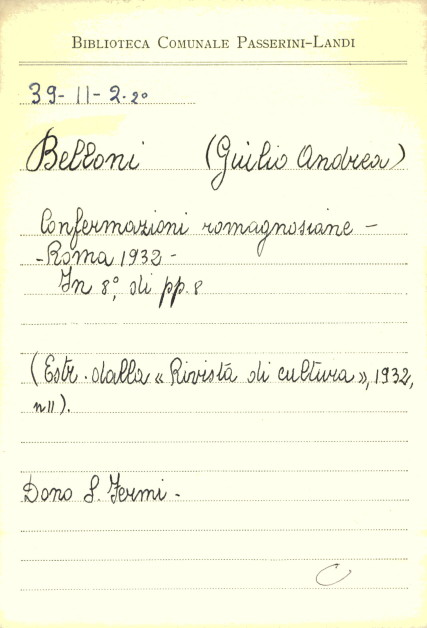 BIBLIOTECA COMUNALE PASSERINI-LANDI
39-11-2.20
Belloni (Giulio Andrea)
Confermazioni romagnosiane -
-Roma 1932-
In 8°, di pp. 8
(Estr. dalla « Rivista di cultura », 1932,
n 11).
Dono S. Fermi -
C